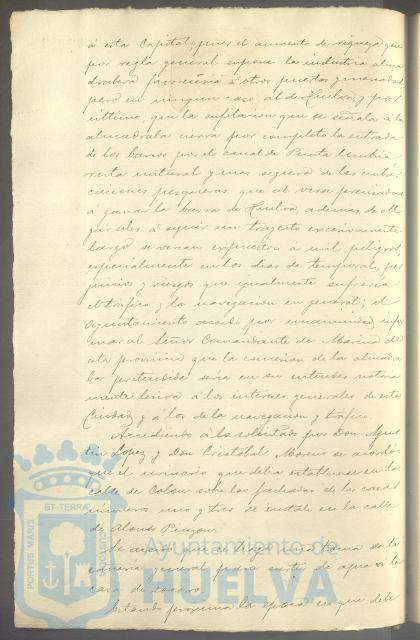 á esta Capital, pues el aumento de riqueza que
por regla general supone la industria alma
drabera favorecería á otros puertos y
pero en ningun caso al de Huelva, y por
ultimo, que la situacion que se señala á la
almadraba cierra por completo la entrada
de los barcos por el canal de Punta Umbria
ruta natural y mas segura de las embar
caciones pesqueras que al verse precisadas
á ganar la barra de Huelva, ademas de obli
garseles á seguir un trayecto excesivamente
largo se verian expuestas á mil peligros
especialmente en los dias de temporal, per
juicios y riesgos que igualmente sufriria
el trafico y la navegacion en general; el
Ayuntamiento acordó por unanimidad infor
mar al Señor Comandante de Marina de
esta provincia que la concesion de la almadra
ba pretendida seria en su entender notoria
mente lesiva á los intereses generales de esta
Ciudad y á los de la navegacion y trafico.
Accediendo á lo solicitado por Don Agus
tin Lopez y Don Cristobal Moreno se acordó
que el urinario que debia establecerse en la
calle de Colon sobre las fachadas de las casas
números uno y tres se instale en la calle
de Alonso Pinzon.
Se acordó
cañeria general para surtir de agua la
casa de socorro.
Estando proxima la epoca en que debe
PORTUS MARIS
ET TERRAE
CUSTODIA
Ayuntamiento de
HUELVA